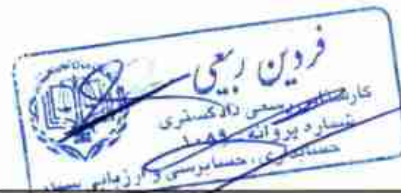 فردین ربیعی
کارشناس رسمی دادگستری
شماره پروانه
حسابداری، حسابرسی و ارزیابی سهام